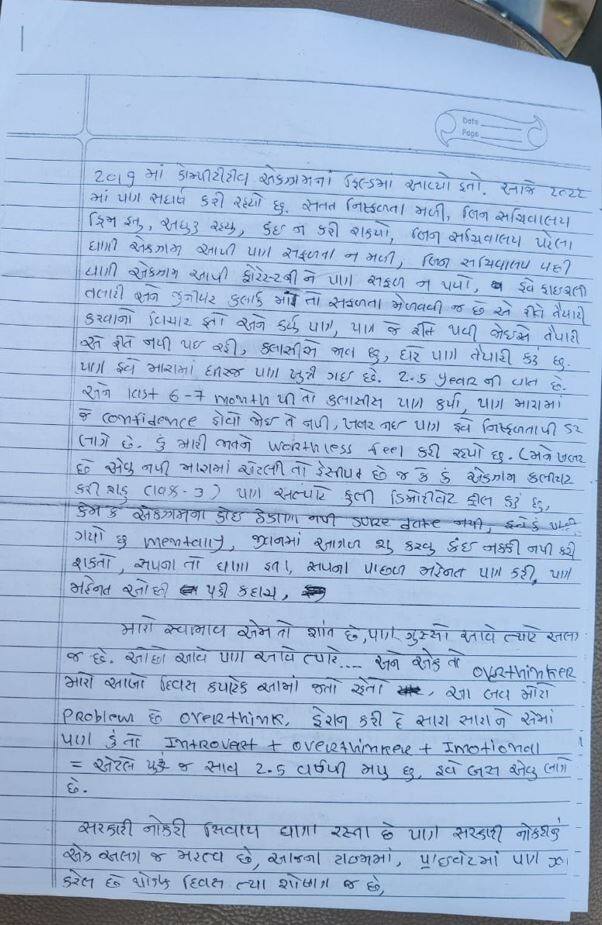 Date
Page
2019 માં કોમ્પીટીટીવ એકઝામનાં ફિલ્ડમાં આવ્યો હતો. આજે 2022
માં પણ સંઘર્ષ કરી રહ્યો છુ. સતત નિષ્ફળતા મળી, બિન સચિવાલય
ડ્રિમ હતુ, અધુરુ રહ્યુ, કંઇ ન કરી શક્યો, બિન સચિવાલય પહેલા
ઘણી એકઝામ આપી પણ સફળતા ન મળી, બિન સચિવાલય પછી
ઘણી એકઝામ આપી ફોરેસ્ટની ને પણ સફળ ન થયો, હવે ફાઇનલી
તલાટી અને જુનીયર કલાર્ક માં તો સફળતા મેળવવી જ છે એ રીતે તૈયારી
કરવાનો વિચાર હતો અને કર્યુ પણ, પણ જે રીતે થવી જોઇએ તૈયારી
એ રીતે નથી થઇ રહી, કલાસીસે જાવ છુ, ઘરે પણ તૈયારી કરુ છુ.
પણ હવે મારામાં ધીરજ પણ ખુટી ગઇ છે. 2.5 year ની વાત છે.
અને last 6-7 month થી તો કલાસીસ પણ કર્યા, પણ મારામાં
જે confidence હોવો જોઇ તે નથી, ખબર નઇ પણ હવે નિષ્ફળતાથી ડર
લાગે છે. હું મારી જાતને worthless feel કરી રહ્યો છુ. (મને ખબર
છે એવુ નથી મારામાં એટલી તો કેપીસીટી છે જ કે હું એકઝામ કલીયર
કરી શકુ (વર્ક-૩) પણ અત્યારે ફુલી ડિમોટીવેટ ફીલ કરુ છુ,
કેમ કે એકઝામના કોઇ ઠેકાણા નથી sure date નથી,
ગયો છુ mentally, જીવનમાં આગળ શુ કરવુ કંઇ નક્કી નથી કરી
શકતો, સપના તો ઘણા હતા, સપના પાછળ મહેનત પણ કરી, પણ
મહેનત ઓછી પડી કદાચ,
મારો સ્વભાવ એમ તો શાંત છે, પણ ગુસ્સો આવે ત્યારે અલગ
જ છે. ઓછો આવે પણ આવે ત્યારે.... અને એક તો overthinker
મારો આખો દિવસ ક્યારેક આમાં જતો રહેતો, આ બવ મોટો
Problem છે overthink, હેરાન કરી દે સારા સારાને એમાં
પણ હું તો Introvert + overthinker + Imotional
= એટલે પુરુ જ સાવ 2.5 વર્ષથી મથુ છુ, હવે બસ એવુ લાગે
છે.
સરકારી નોકરી સિવાય ઘણા રસ્તા છે પણ સરકારી નોકરીનું
એક અલગ જ મહત્વ છે, આજના ટાઇમમાં, પ્રાઇવેટમાં પણ જોબ
કરેલ છે થોડાક દિવસ ત્યા શોષણ જ છે,